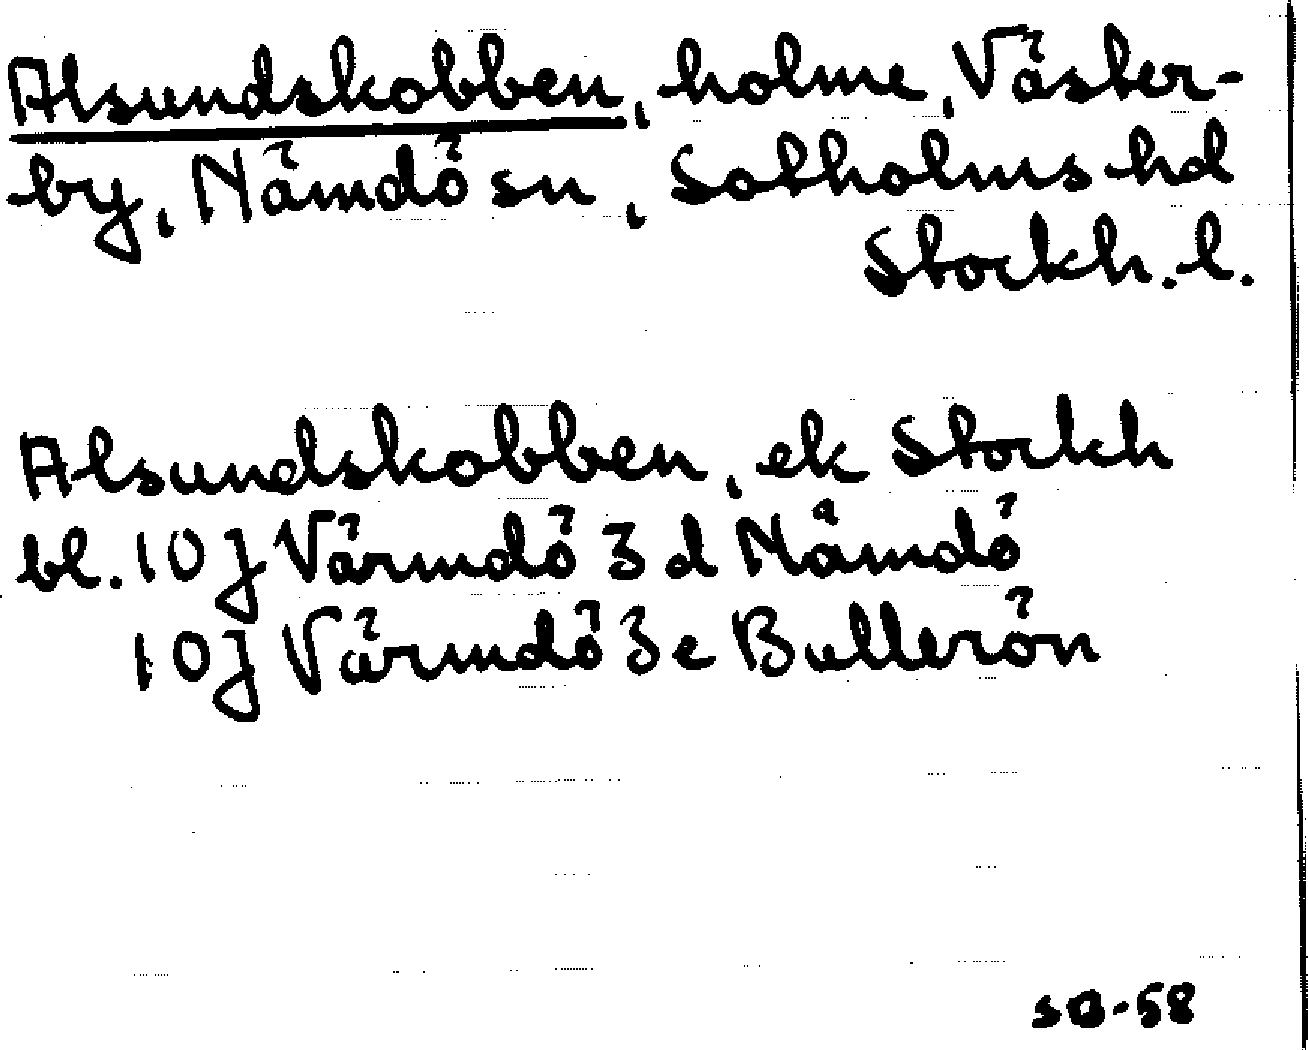 Alsundskobben, holme, Väster-
by, Nämdö sn, Sotholms hd
Stockh. l.
Alsundskobben, ek Stockh
bl. 10 J Värmdö 3 d Nämdö
10 J Värmdö 3 e Bullerön
SB-58